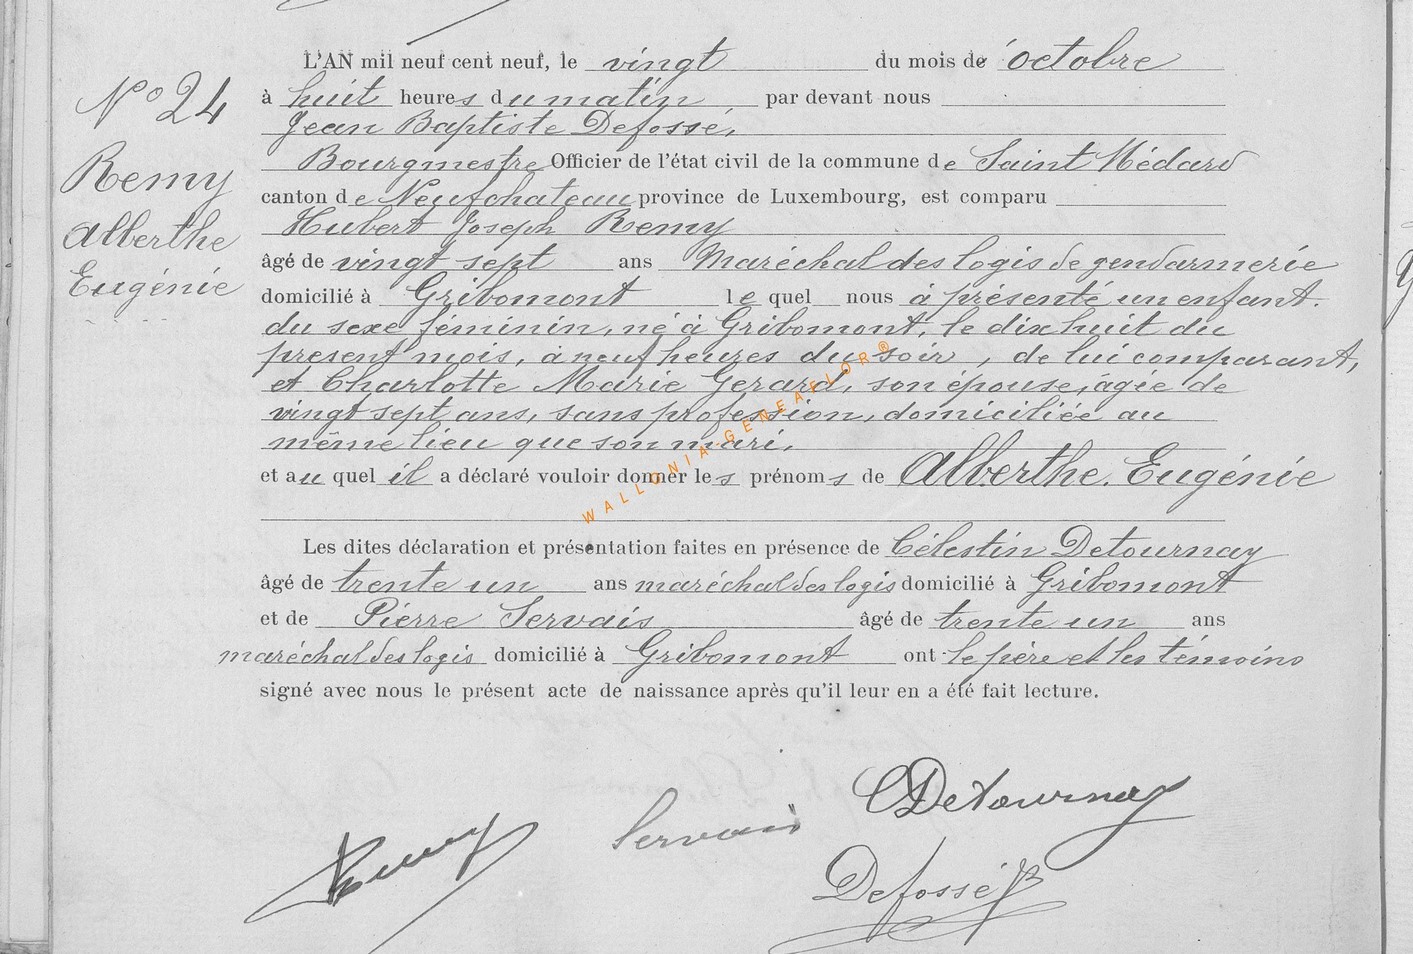 N° 24
Remy
Alberthe
Eugénie
L'AN mil neuf cent neuf, le vingt du mois de octobre
à huit heures du matin par devant nous
Jean Baptiste Defossé,
Bourgmestre Officier de l'état civil de la commune de Saint Médard
canton de Neufchateau province de Luxembourg, est comparu
Hubert Joseph Remy
âgé de vingt sept ans Maréchal des logis de gendarmerie
domicilié à Gribomont le quel nous à présenté un enfant.
du sexe féminin, né à Gribomont, le dix huit du
present mois, à neuf heures du soir, de lui comparant,
et Charlotte Marie Gerard, son épouse, âgée de
vingt sept ans, sans profession, domiciliée au
même lieu que son mari,
et au quel il a déclaré vouloir donner les prénoms de Alberthe. Eugénie
Les dites déclaration et présentation faites en présence de Célestin Detournay
âgé de trente un ans maréchal des logis domicilié à Gribomont
et de Pierre Servais âgé de trente un ans
maréchal des logis domicilié à Gribomont ont le père et les témoins
signé avec nous le présent acte de naissance après qu'il leur en a été fait lecture.
CDetournay
Remy Servais
Defossé JB
WALLONIA-GENEAFLOR®